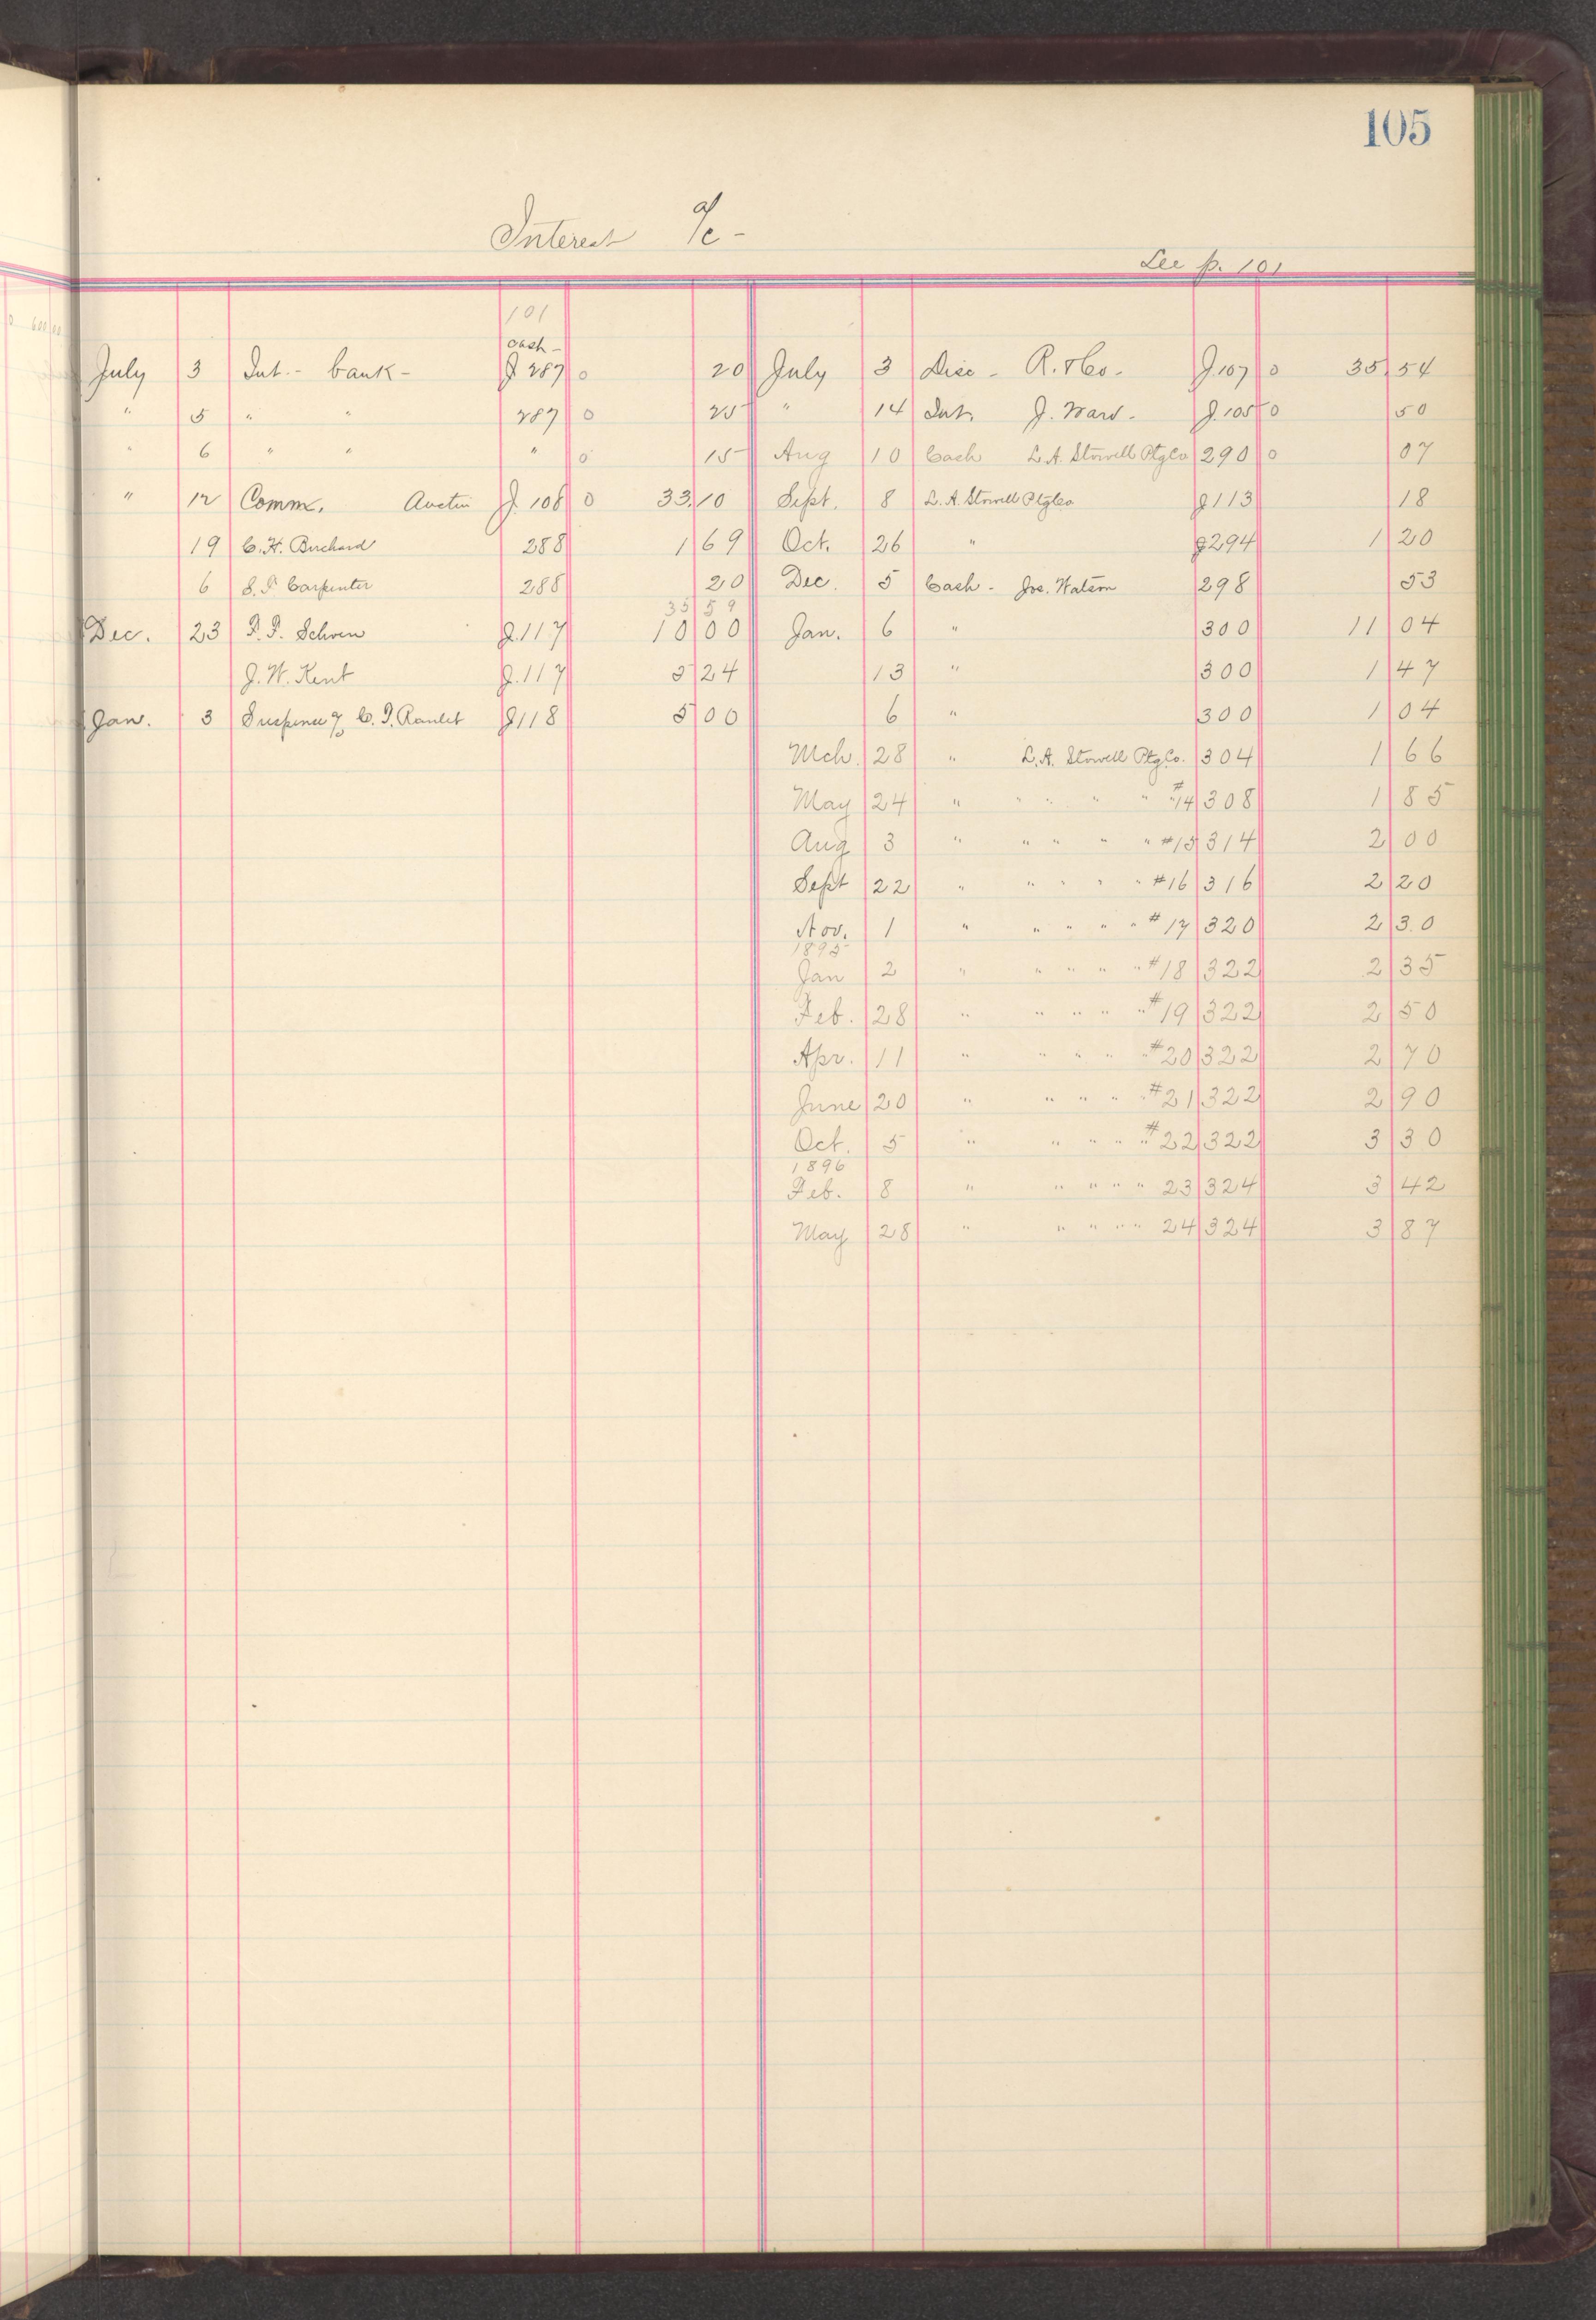 105
Interest a/c -
See p. 101
101
Cash -
July 3 Int. - bank - J 287 0 20
" 5 " " 287 0 25
" 6 " " " 0 15
" 12 Comm. Austin J. 108 0 33.10
19 C. H. Burchard 288 1 69
6 S. P. Carpenter 288 20
35 59
Dec. 23 P. P. Schven J. 117 10 00
J. W. Kent J. 117 3 24
Jan. 3 Suspense % C. I. Ranlet J118 5 00
July 3 Disc - R. & Co. - J. 107 0 35 54
" 14 Int. J. Ward - J. 105 0 50
Aug 10 Cash L. A. Stowell Ptg Co 290 0 07
Sept. 8 L. A. Stowell Ptg Co J113 18
Oct. 26 " J294 1 20
Dec. 5 Cash - Jos. Watson 298 53
Jan. 6 " 300 11 04
13 " 300 1 47
6 " 300 1 04
Mch. 28 " L. A. Stowell Ptg Co. 304 1 66
May 24 " " " " " #14 308 1 85
Aug 3 " " " " " #15 314 2 00
Sept 22 " " " " " #16 316 2 20
Nov. 1 " " " " " #17 320 2 30
1895
Jan 2 " " " " " #18 322 2 35
Feb. 28 " " " " " #19 322 2 50
Apr. 11 " " " " " #20 322 2 70
June 20 " " " " " #21 322 2 90
Oct. 5 " " " " " #22 322 3 30
1896
Feb. 8 " " " " " 23 324 3 42
May 28 " " " " " 24 324 3 87